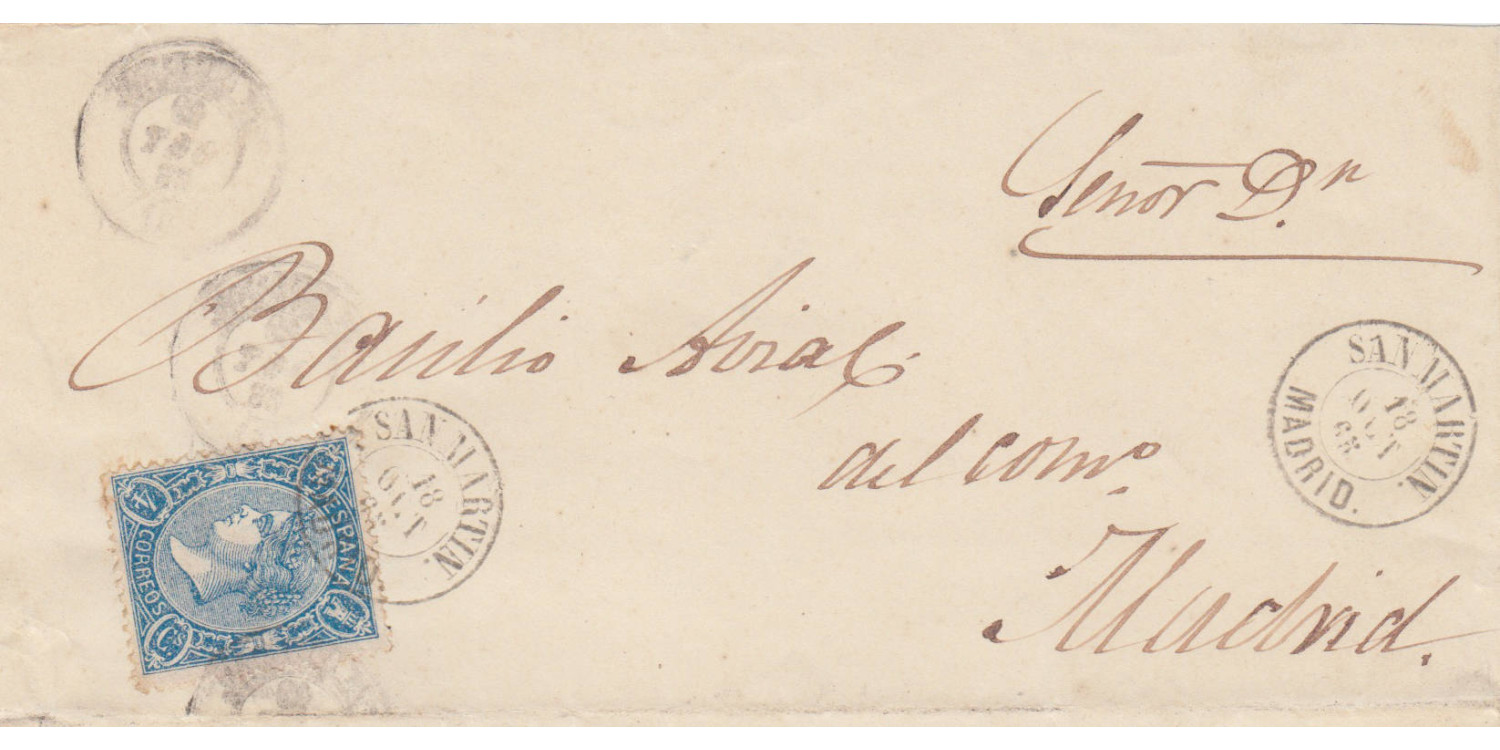 Señor Dn
Basilio Avial
del como.
Madrid.
SAN MARTIN.
18
OCT
MADRID.
SAN MARTIN.
18
OCT
4
ESPAÑA
CORREOS
Cs